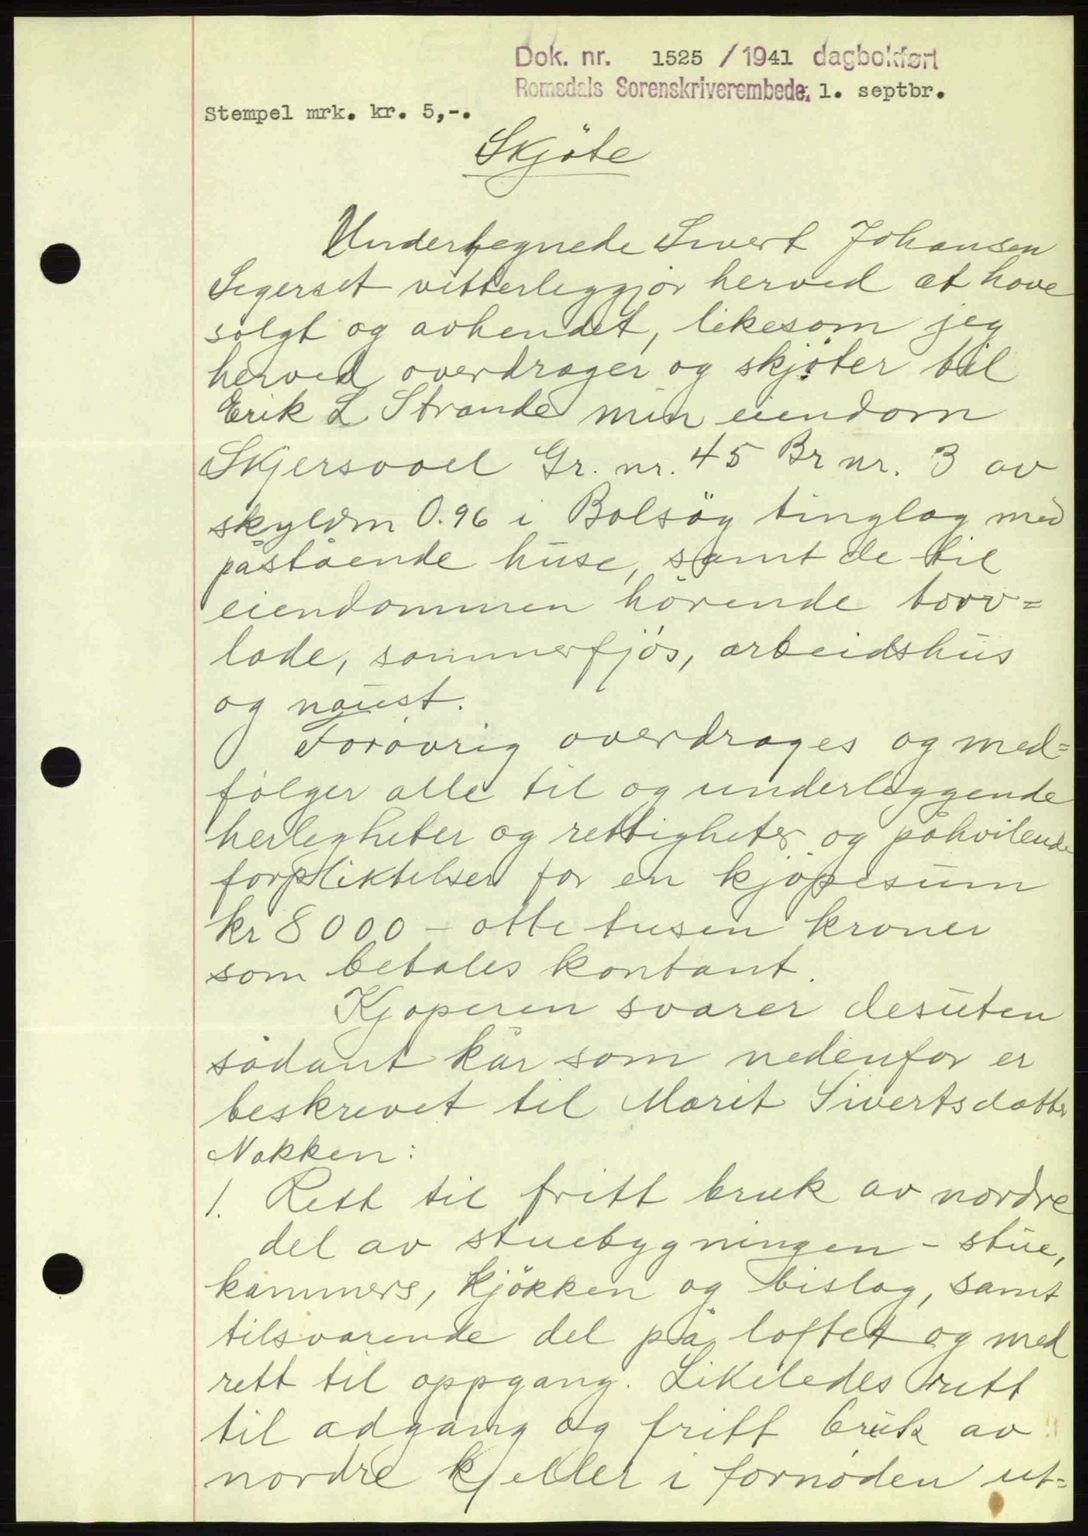 Dok. nr. 1525 /1941 dagbokført
Romsdals Sorenskriverembede, 1. septbr.
Stempel mrk. kr. 5,-.
Skjöte
Undertegnede Sivert Johansen
Segerset vitterleggjör herved at have
solgt og avhendet, likesom jeg
herved overdrager og skjöter til
Erik L Strande min eiendom
Skjersaael Gr. nr. 45 Br nr. 3 av
skyldm 0.96 i Bolsöy tinglag med
påstående huse, samt de til
eiendommen hörende torv=
lade, sommerfjös, arbeidshus
og naust.
Forövrig overdrages og med=
fölger alle til og underleggende
herlegheter og rettigheter og påhvilende
forpliktelser for en kjöpesum
kr 8000 - otte tusen kroner
som betales kontant.
Kjöperen svarer desuten
sådant kår som nedenfor er
beskrevet til Marit Sivertsdatter
Nakken:
1. Rett til fritt bruk av nordre
del av stuebygningen - stue,
kammers, kjökken og bislag, samt
tilsvarende del på loftet og med
rett til oppgang. Likeledes rett
til adgang og fritt bruk av
nordre kjeller i fornöden ut=